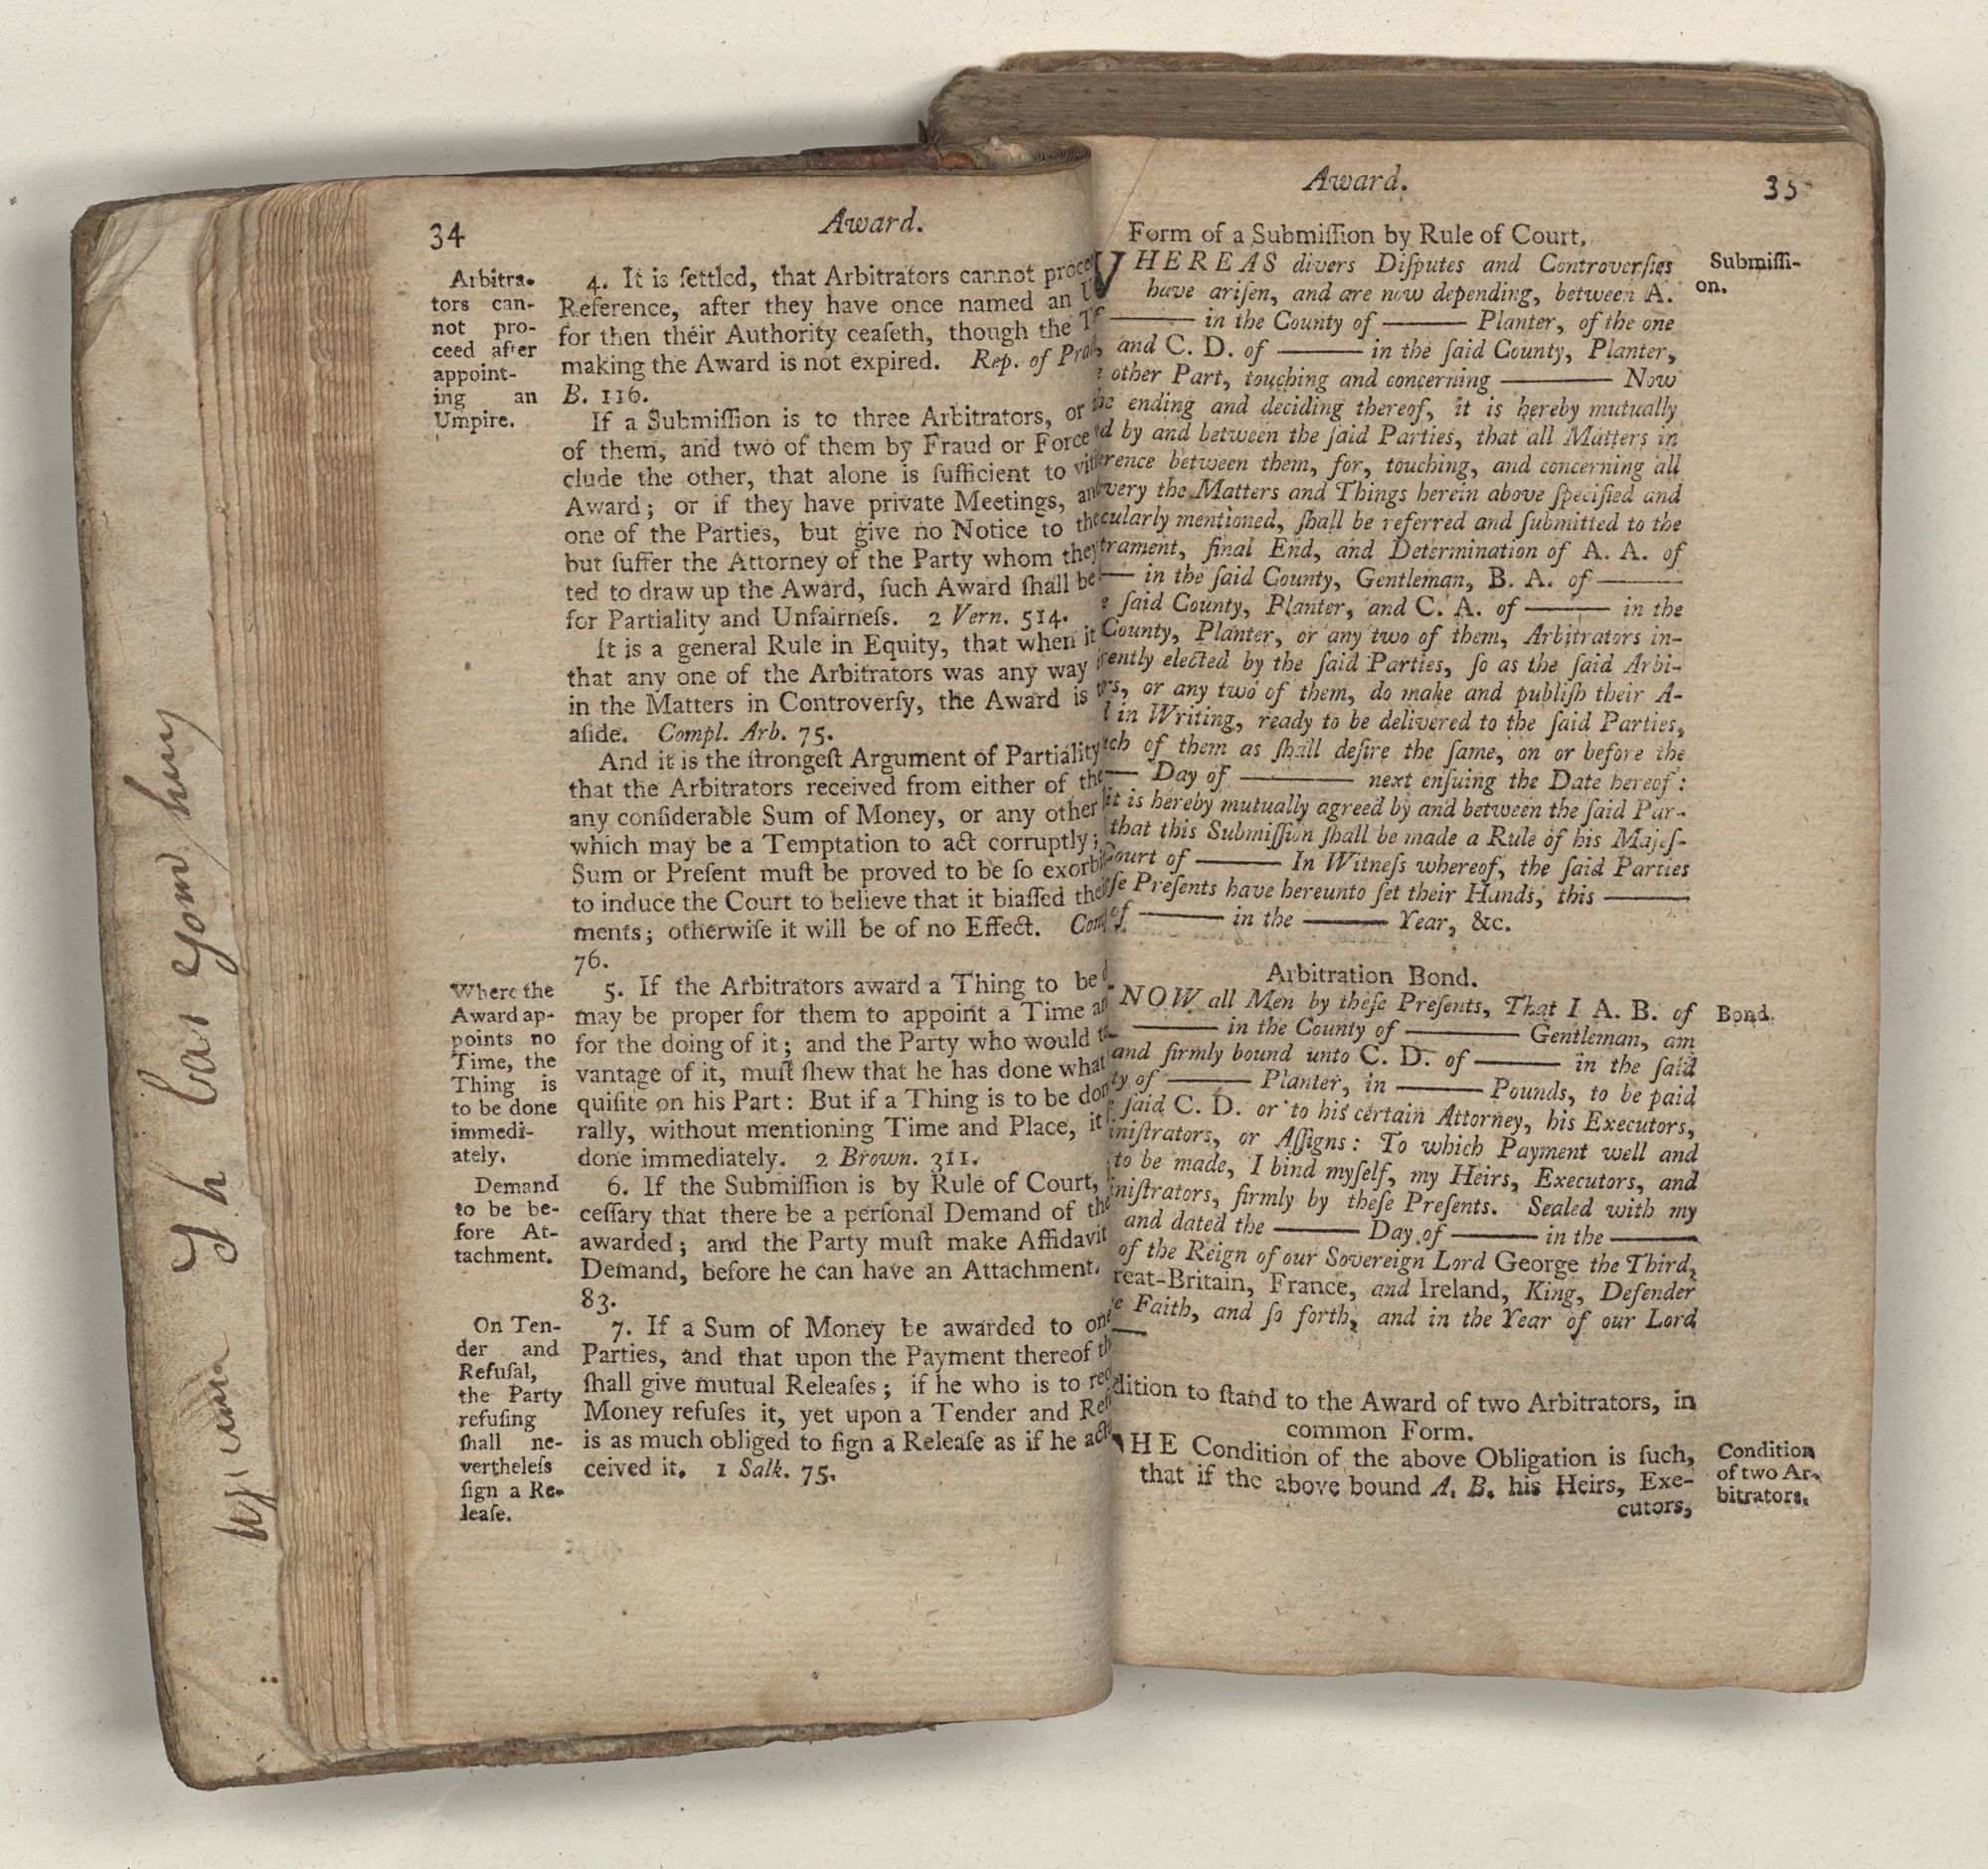 34
Award.
Arbitra-
tors can-
not pro-
ceed after
appoint-
ing an
Umpire.
4. It is ſettled, that Arbitrators cannot
Reference, after they have once named an
for then their Authority ceaſeth, though the
making the Award is not expired. Rep. of
B. 116.
If a Submiſſion is to three Arbitrators, or
of them, and two of them by Fraud or Force
clude the other, that alone is ſufficient to
Award; or if they have private Meetings,
one of the Parties, but give no Notice to
but ſuffer the Attorney of the Party whom they
ted to draw up the Award, ſuch Award ſhall be
for Partiality and Unfairneſs. 2 Vern. 514.
It is a general Rule in Equity, that when it
that any one of the Arbitrators was any way
in the Matters in Controverſy, the Award is
aſide. Compl. Arb. 75.
And it is the ſtrongeſt Argument of Partiality
that the Arbitrators received from either of the
any conſiderable Sum of Money, or any other
which may be a Temptation to act corruptly;
Sum or Preſent muſt be proved to be ſo
to induce the Court to believe that it biaſſed
ments; otherwiſe it will be of no Effect.
76.
Where the
Award ap-
points no
Time, the
Thing is
to be done
immedi-
ately.
5. If the Arbitrators award a Thing to be
may be proper for them to appoint a Time
for the doing of it; and the Party who would
vantage of it, muſt ſhew that he has done what
quiſite on his Part: But if a Thing is to be
rally, without mentioning Time and Place, it
done immediately. 2 Brown. 311.
Demand
to be be-
fore At-
tachment.
6. If the Submiſſion is by Rule of Court,
ceſſary that there be a perſonal Demand of
awarded; and the Party muſt make Affidavit
Demand, before he can have an Attachment.
83.
On Ten-
der and
Refuſal,
the Party
refuſing
ſhall ne-
vertheleſs
ſign a Re-
leaſe.
7. If a Sum of Money be awarded to
Parties, and that upon the Payment thereof
ſhall give mutual Releaſes; if he who is to
Money refuſes it, yet upon a Tender and
is as much obliged to ſign a Releaſe as if he
ceived it. 1 Salk. 75.
Award.
35
Form of a Submiſſion by Rule of Court.
Submiſſi-
on.
WHEREAS divers Diſputes and Controverſies
have ariſen, and are now depending, between A.
—— in the County of —— Planter, of the one
and C. D. of —— in the ſaid County, Planter,
other Part, touching and concerning —— Now
ending and deciding thereof, it is hereby mutually
by and between the ſaid Parties, that all Matters in
rence between them, for, touching, and concerning all
very the Matters and Things herein above ſpecified and
cularly mentioned, ſhall be referred and ſubmitted to the
trament, final End, and Determination of A. A. of
—— in the ſaid County, Gentleman, B. A. of ——
ſaid County, Planter, and C. A. of —— in the
County, Planter, or any two of them, Arbitrators in-
rently elected by the ſaid Parties, ſo as the ſaid Arbi-
rs, or any two of them, do make and publiſh their A-
in Writing, ready to be delivered to the ſaid Parties,
ch of them as ſhall deſire the ſame, on or before the
—— Day of —— next enſuing the Date hereof:
it is hereby mutually agreed by and between the ſaid Par-
that this Submiſſion ſhall be made a Rule of his Majeſ-
Court of —— In Witneſs whereof, the ſaid Parties
ſe Preſents have hereunto ſet their Hands, this ——
of —— in the —— Year, &c.
Arbitration Bond.
Bond.
NOW all Men by theſe Preſents, That I A. B. of
—— in the County of —— Gentleman, am
and firmly bound unto C. D. of —— in the ſaid
ty of —— Planter, in —— Pounds, to be paid
ſaid C. D. or to his certain Attorney, his Executors,
iniſtrators, or Aſſigns: To which Payment well and
to be made, I bind myſelf, my Heirs, Executors, and
iniſtrators, firmly by theſe Preſents. Sealed with my
and dated the —— Day of —— in the ——
of the Reign of our Sovereign Lord George the Third,
reat-Britain, France, and Ireland, King, Defender
Faith, and ſo forth, and in the Year of our Lord
——
dition to ſtand to the Award of two Arbitrators, in
common Form.
Condition
of two Ar-
bitrators.
HE Condition of the above Obligation is ſuch,
that if the above bound A. B. his Heirs, Exe-
cutors,